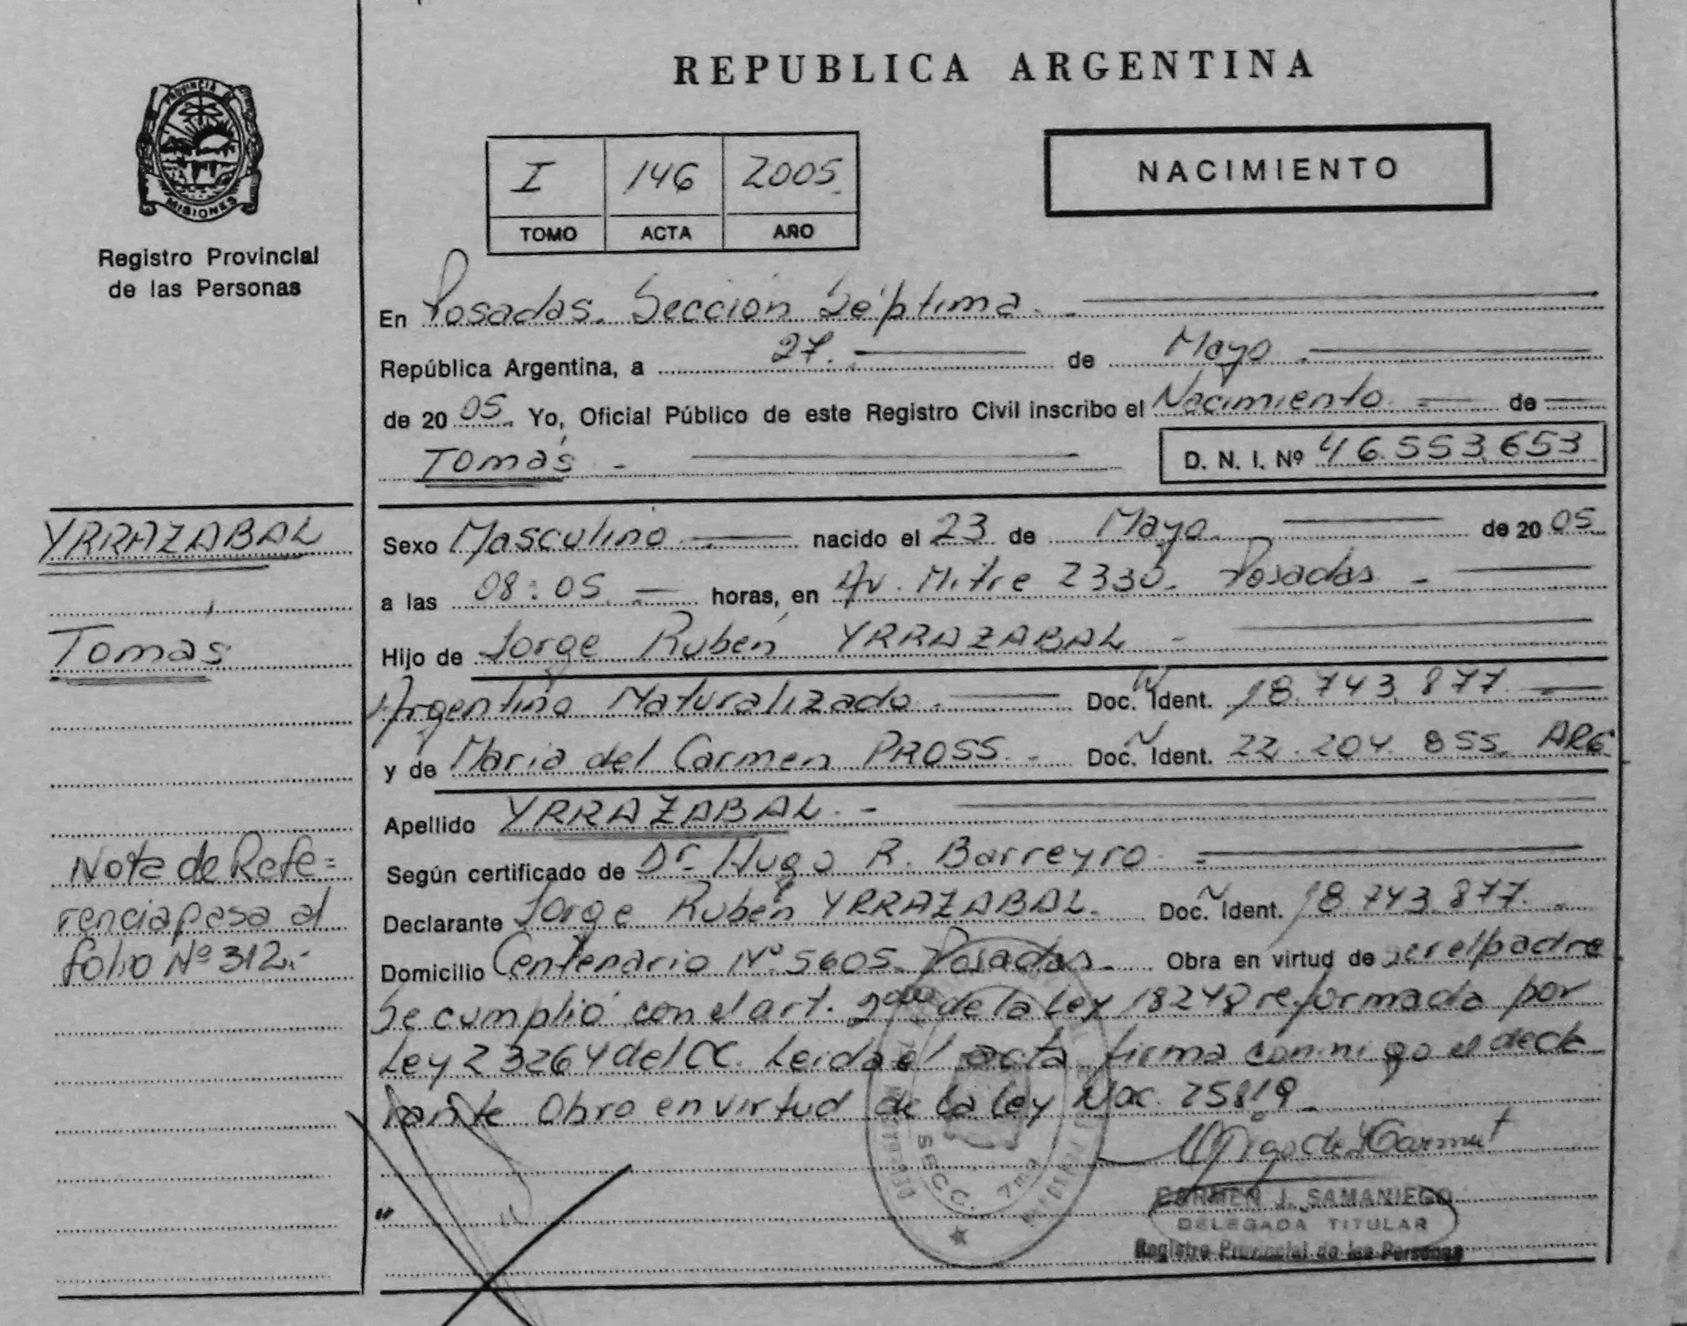 PROVINCIA DE
MISIONES
Registro Provincial
de las Personas
REPUBLICA ARGENTINA
I 146 2005
TOMO ACTA AÑO
NACIMIENTO
En Posadas. Sección Séptima.
República Argentina, a 27. de Mayo
de 2005. Yo, Oficial Público de este Registro Civil inscribo el Nacimiento de
Tomás
D. N. I. Nº 46.553.653
YRRAZABAL
Tomás
Sexo Masculino nacido el 23 de Mayo. de 2005
a las 08:05 horas, en Av. Mitre 2330. Posadas
Hijo de Jorge Rubén YRRAZABAL
Argentino Naturalizado. Doc. Ident. 18.743.877
y de Maria del Carmen PROSS. Doc. Ident. 22.204.855. ARG
Apellido YRRAZABAL.
Según certificado de Dr. Hugo R. Barreyro
Declarante Jorge Rubén YRRAZABAL. Doc. Ident. 18.743.877.
Domicilio Centenario Nº 5605. Posadas. Obra en virtud de ser el padre
Se cumplió con el art. 2do de la Ley 18248 reformada por
Ley 23264 del CC. Leida el acta firma conmigo el decla
rante Obro en virtud de la Ley Nac. 25819
Nota de Refe=
rencia pasa al
folio Nº 312.-
SECC. 7ma
CARMEN J. SAMANIEGO
DELEGADA TITULAR
Registro Provincial de las Personas